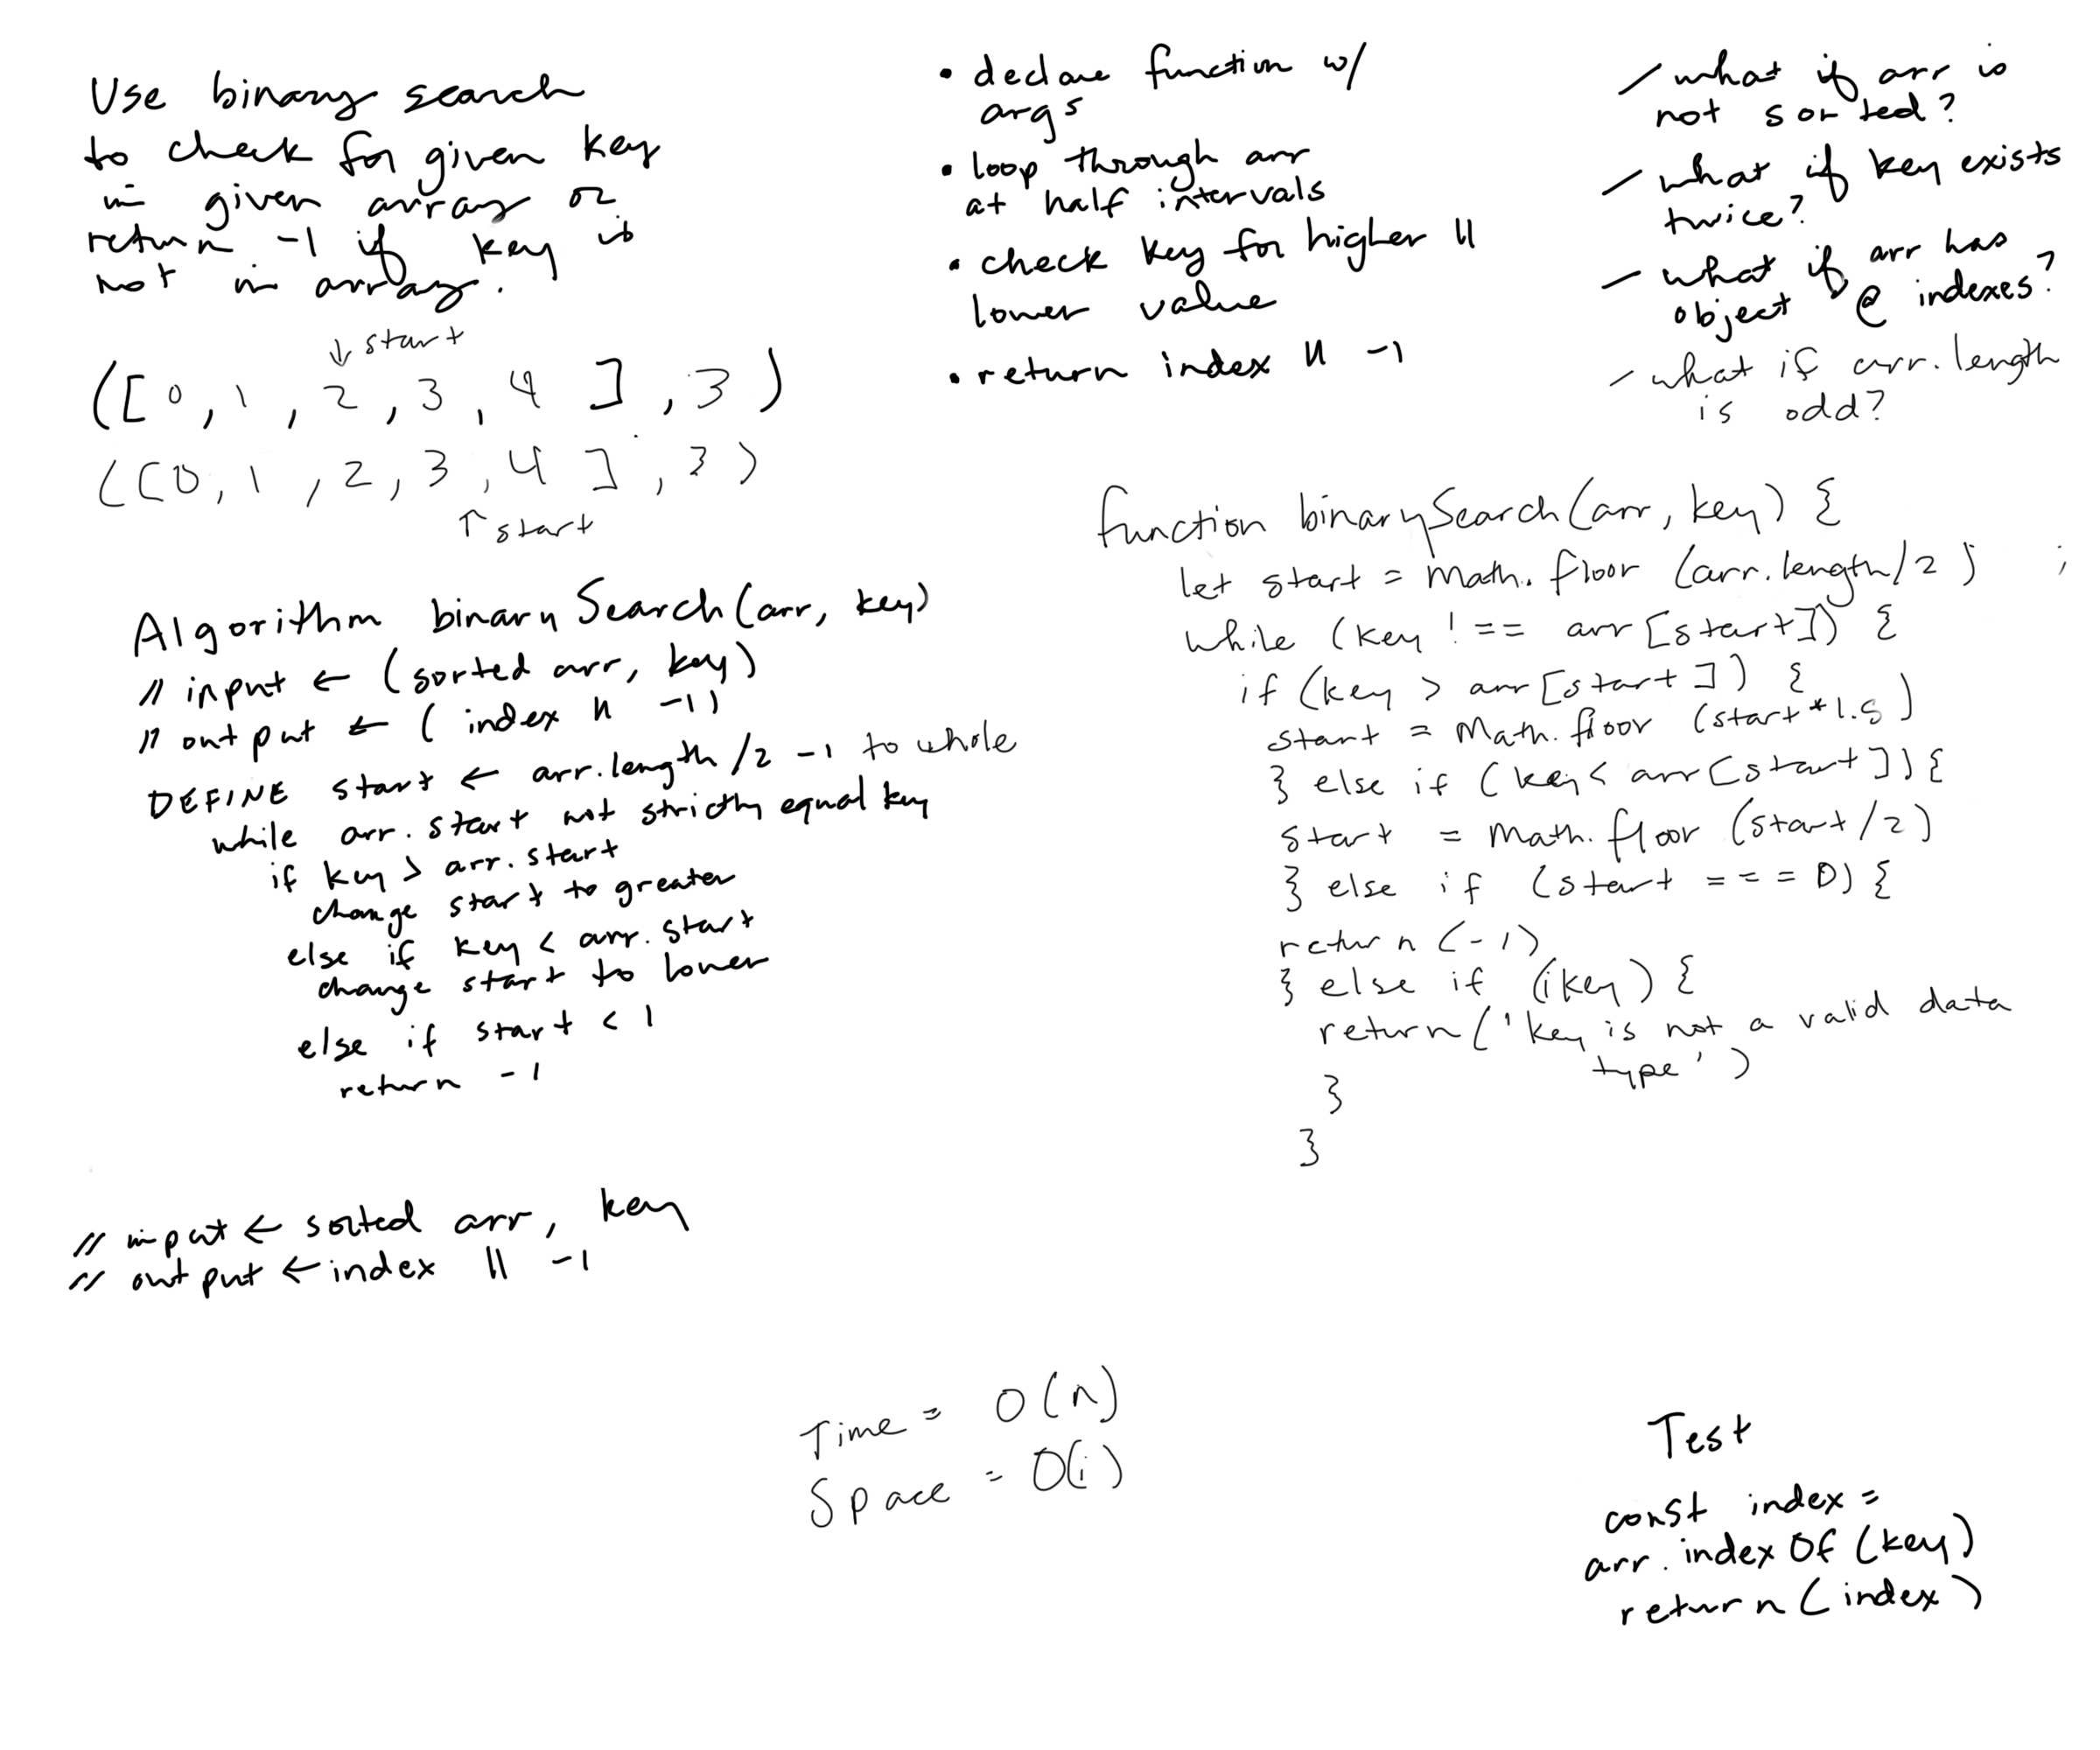 Use binary search
to check for given key
in given array or
return -1 if key is
not in array.
↓ start
([0, 1, 2, 3, 4], 3)
([0, 1, 2, 3, 4], 3)
↑ start
Algorithm binarySearch(arr, key)
// input ← (sorted arr, key)
// output ← (index || -1)
DEFINE start ← arr.length/2 -1 to whole
while arr.start not strictly equal key
if key > arr.start
change start to greater
else if key < arr.start
change start to lower
else if start < 1
return -1
// input ← sorted arr, key
// output ← index || -1
• declare function w/
args
• loop through arr
at half intervals
• check key for higher ||
lower value
• return index || -1
- what if arr is
not sorted?
- what if key exists
twice?
- what if arr has
object @ indexes?
- what if arr.length
is odd?
function binarySearch(arr, key) {
let start = Math.floor (arr.length/2) ;
while (key !== arr[start]) {
if (key > arr[start]) {
start = Math.floor (start*1.5)
} else if (key < arr[start]) {
start = Math.floor (start/2)
} else if (start === 0) {
return (-1)
} else if (!key) {
return('key is not a valid data
type')
}
}
Time = O(n)
Space = O(1)
Test
const index =
arr.indexOf(key)
return(index)